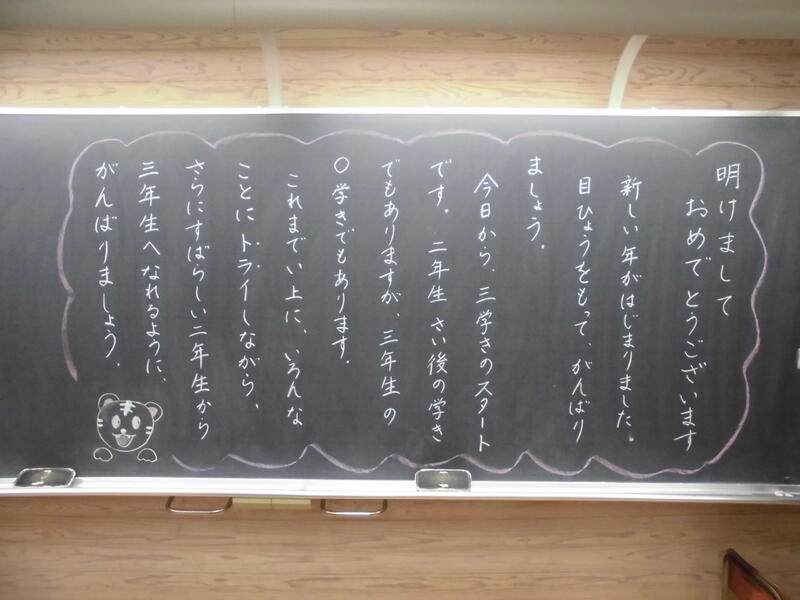 明けまして
おめでとうございます
新しい年がはじまりました。
目ひょうをもって、がんばり
ましょう。
今日から、三学きのスタート
です。二年生さい後の学き
でもありますが、三年生の
〇学きでもあります。
これまでい上に、いろんな
ことにトライしながら、
さらにすばらしい二年生から
三年生へなれるように、
がんばりましょう。